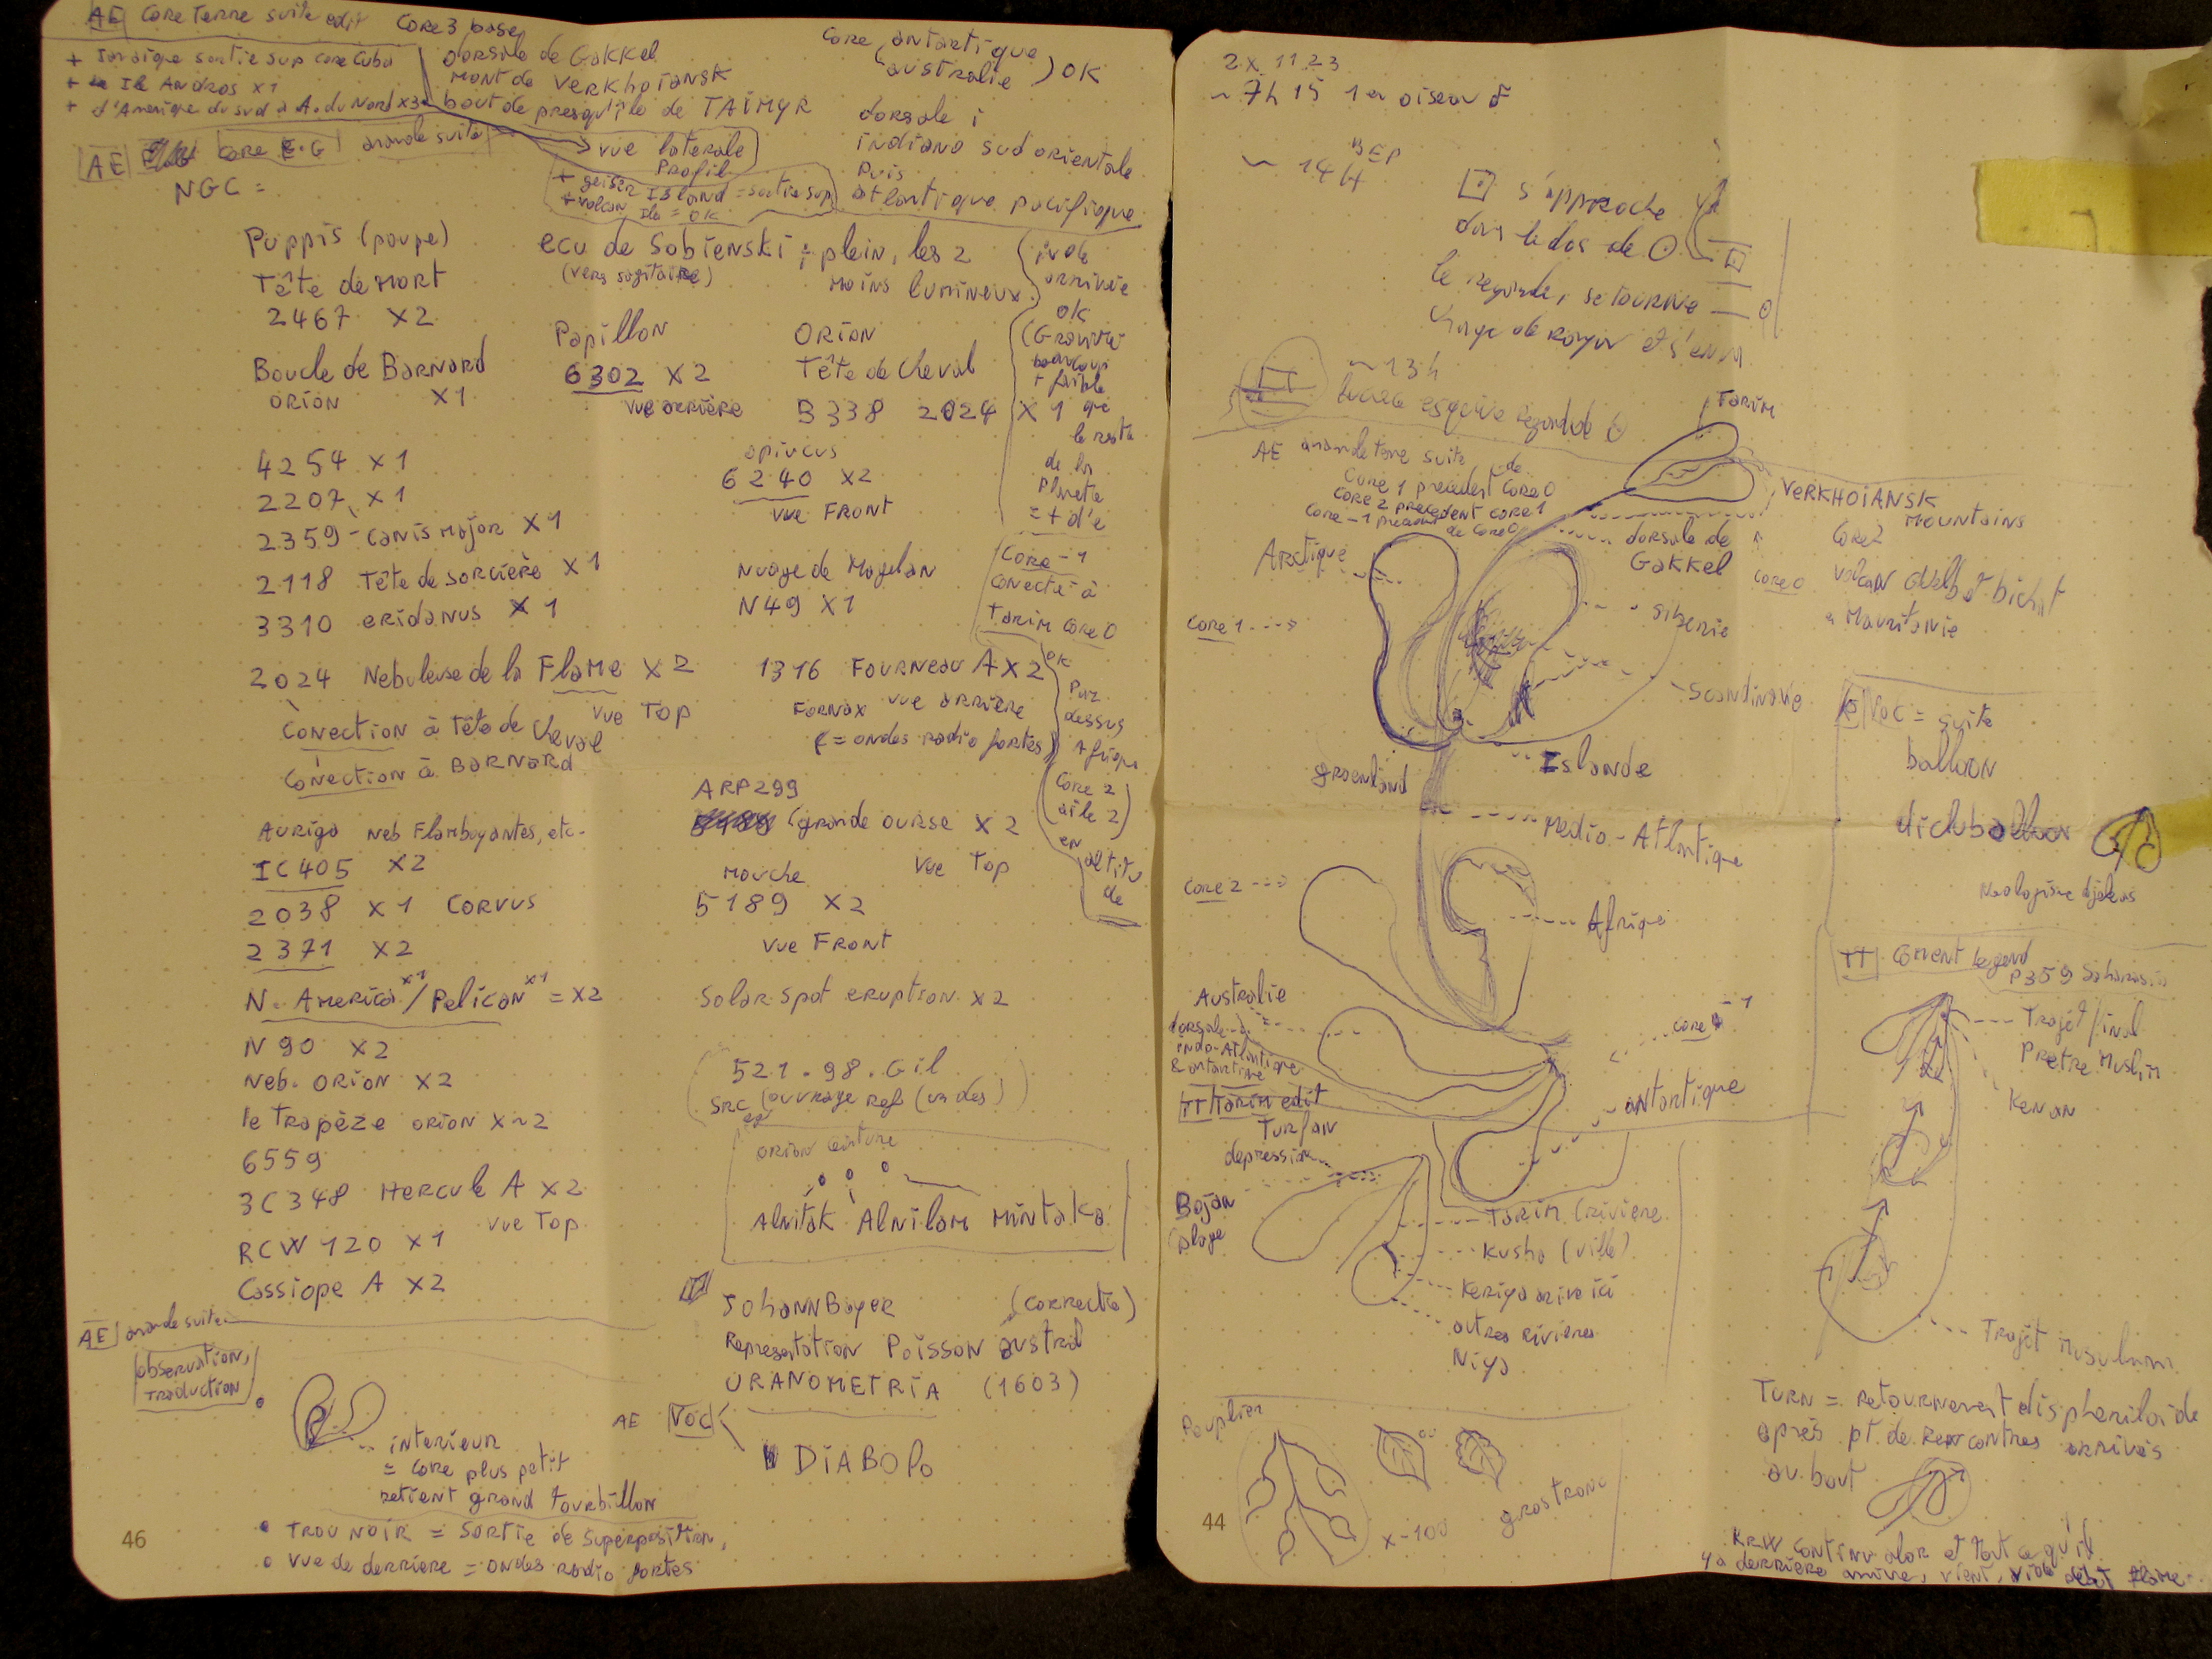 AE Core Terre suite edit
Core 3 base
+ Jamaïque sortie sup core Cuba
+ Ile Andros x1
+ d'Amerique du sud à A. du Nord x3
dorsale de Gakkel
Mont de Verkhoiansk
bout de presqu'île de TAÏMYR
Core antartique
australie OK
dorsale
indiano sud orientale
puis
atlantique pacifique
vue laterale
Profil
+ geiser Island = sortie sup
+ volcan Ile = OK
AE Core E.G grande suite
NGC =
Puppis (poupe)
Tête de Mort
2467 x2
Boucle de Barnard
Orion x1
4254 x1
2207 x1
2359 - canis Major x1
2118 Tête de sorcière x1
3310 eridanus x1
2024 Nebuleuse de la Flame x2
vue Top
Conection à Tête de Cheval
Conection à BARNARD
Auriga Neb Flamboyantes, etc.
IC405 x2
2038 x1 Corvus
2371 x2
N. America x1 / Pelican x1 = x2
N90 x2
Neb. Orion x2
le Trapèze orion x~2
6559
3C348 Hercule A x2
vue Top
RCW 120 x1
Cassiope A x2
ecu de Sobienski : plein, les 2
(vers sagitaire) moins lumineux
Papillon
6302 x2
vue arrière
ORION
Tête de cheval
B33 2024 x1
opiucus
6240 x2
vue FRONT
Nuage de Magelan
N49 x1
1316 Fourneau A x2
Fornax vue arrière
(= ondes radio fortes)
ARP299
(grande ourse x2
vue Top
Mouche
5189 x2
vue FRONT
Solar Spot eruption x2
521.98.Gil
Src (ouvrage ref
orion ceinture
Alnitak Alnilam Mintaka
Johann Bayer (correctio)
Representation Poisson austral
URANOMETRIA (1603)
AE VOC
DIABOLO
arrivée
ok
(Gravité
beaucoup
+ faible
que
le reste
de la
planete
= + d'e
Core -1
conecté à
Tarim core 0
ok
par
dessus
Afrique
(core 2
aile 2)
en
altitu
de
AE grande suite
observation,
traduction
interieur
= core plus petit
retient grand tourbillon
• TROU NOIR = Sortie de Superposition,
• vue de derriere = ondes radio fortes
46
2x 11 23
~ 7h 15 1er oiseau
~ 14H
s'approche
dans le dos de
le regarde, se tourne
~ 13h
AE grande terre suite
Core 1 precedent de Core 0
Core 2 precedent core 1
Core -1 precedent de Core 0
Tarim
VERKHOIANSK
MOUNTAINS
Core 2
dorsale de
Gakkel
Core 0
Mauritanie
Arctique
Siberie
Core 1
Scandinavie
Islande
groenland
Medio-Atlantique
Core 2
Afrique
Australie
dorsale
indo-Atlantique
& antartique
core -1
antartique
TT Tarim edit
Turfan
depression
Bojan
plage
Tarim (riviere
Kusha (ville)
Keriya arrive ici
autres rivieres
Niya
VOC = suite
balloon
TT Coment legend
P359
Trajet final
Pretre Muslim
Kenan
Trajet musulman
TURN = retournement
après pt. de rencontres arrivés
au bout
Peuplier
x~100
gros tronc
44